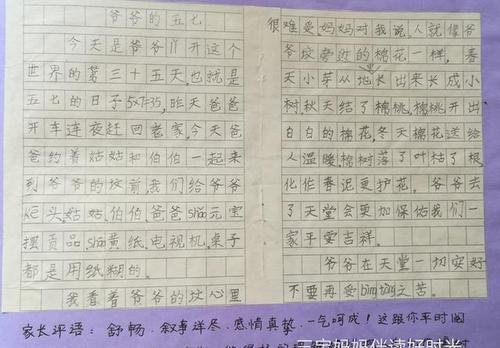 爷爷的五七
今天是爷爷离开这个
世界的第三十五天,也就是
五七的日子5×7=35,昨天爸爸
开车连夜赶回老家,今天爸
爸约着姑姑和伯伯一起来
到爷爷的坟前,我们给爷爷
ke头,姑姑,伯伯,爸爸shāo元宝
摆贡品shāo黄纸,电视机,桌子
都是用纸糊的。
我看着爷爷的坟心里
很难受,妈妈对我说,人就像爷
爷坟旁边的棉花一样,春
天小芽从地长出来长成小
树,秋天结了棉桃,棉桃开出
白白的棉花,冬天棉花送给
人温暖,棉树落了叶枯了根
化作春泥更护花。爷爷去
了天堂会更加保佑我们一
家平安吉祥。
爷爷在天堂一切安好
不要再受bìng tòng之苦。
家长评语:舒畅.叙事详尽.感情真挚.一气呵成!这跟你平时阅
三宝妈妈伴读好时光